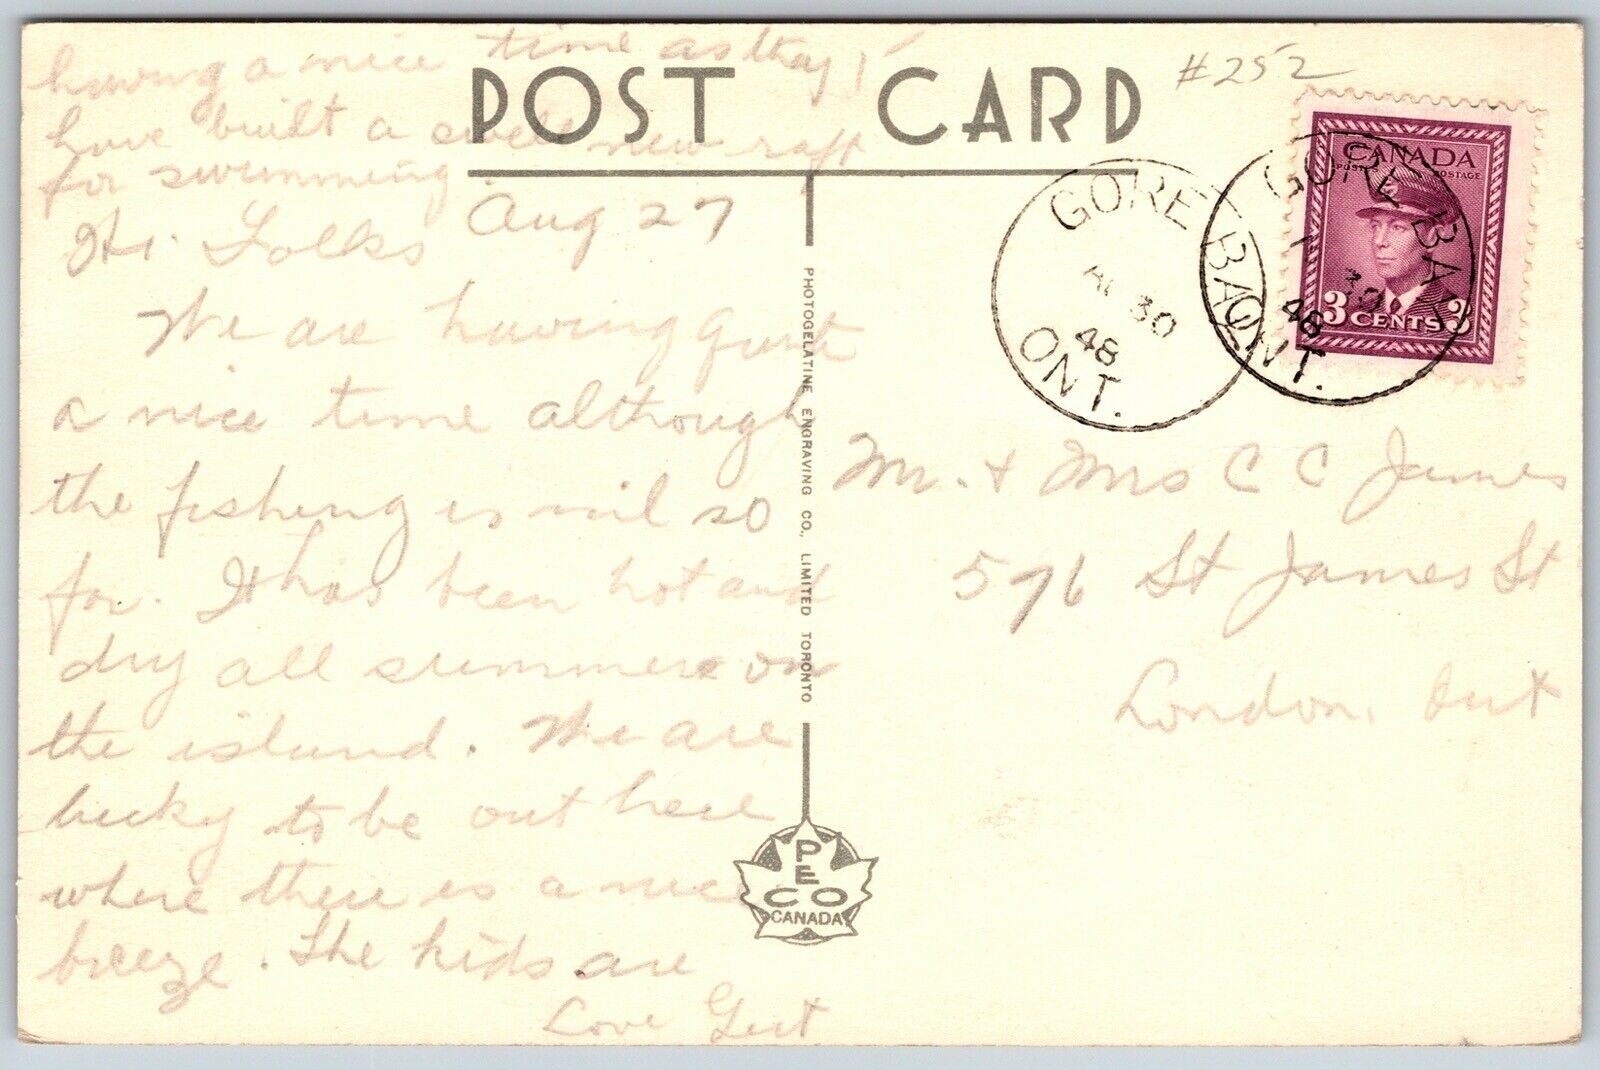 having a nice time as they
have built a swell new raft
for swimming
POST CARD
#252
Aug 27
Hi. Folks
We are having quite
a nice time although
the fishing is nil so
far. It has been hot and
dry all summer on
the island. We are
lucky to be out here
where there is a nice
breeze. The kids are
Love Gert
PHOTOGELATINE ENGRAVING CO., LIMITED TORONTO
PECO
CANADA
GORE BAY
AU 30
48
ONT.
GORE BAY
30
48
ONT.
CANADA
POSTES POSTAGE
3 CENTS 3
Mr. + Mrs C C James
576 St James St
London, Ont